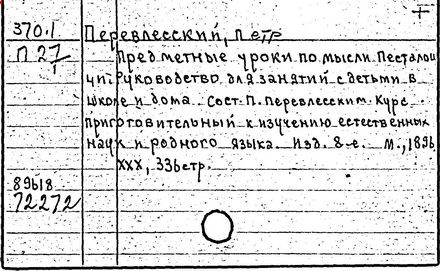 370.1 Перевлесский, Петр
П 27 Предметные уроки по мысли Песталоц
ци. Руководство для занятий с детьми в
школе и дома. Сост. П. Перевлесским. Курс
приготовительный к изучению естественных
наук и родного языка. Изд. 8-е. М., 1896
XXX, 336 стр.
89618
72272